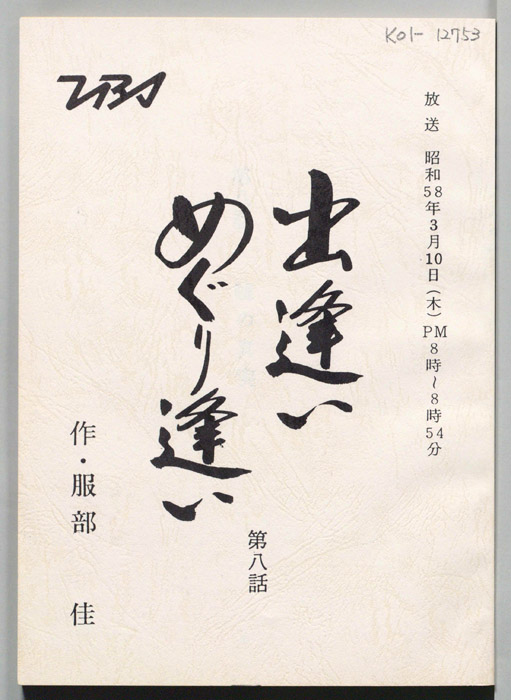 K01-12753
TBS
放送 昭和58年3月10日(木)PM8時~8時54分
出逢い
めぐり逢い
第八話
作・服部 佳